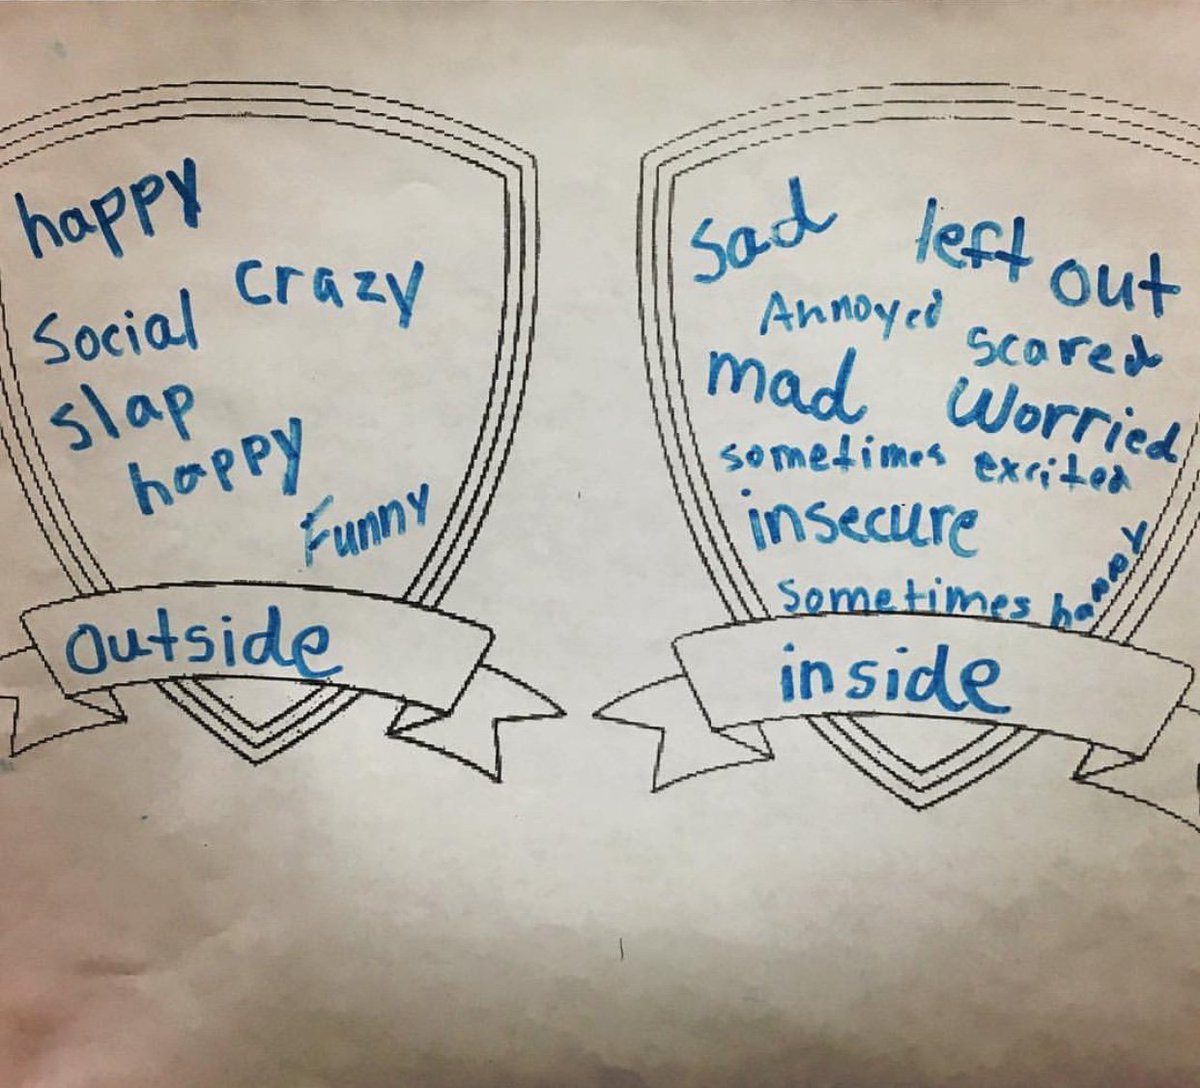 happy
crazy
Social
slap
happy
Funny
outside
sad
left out
Annoyed
scared
mad
Worried
sometimes excited
insecure
sometimes happy
inside